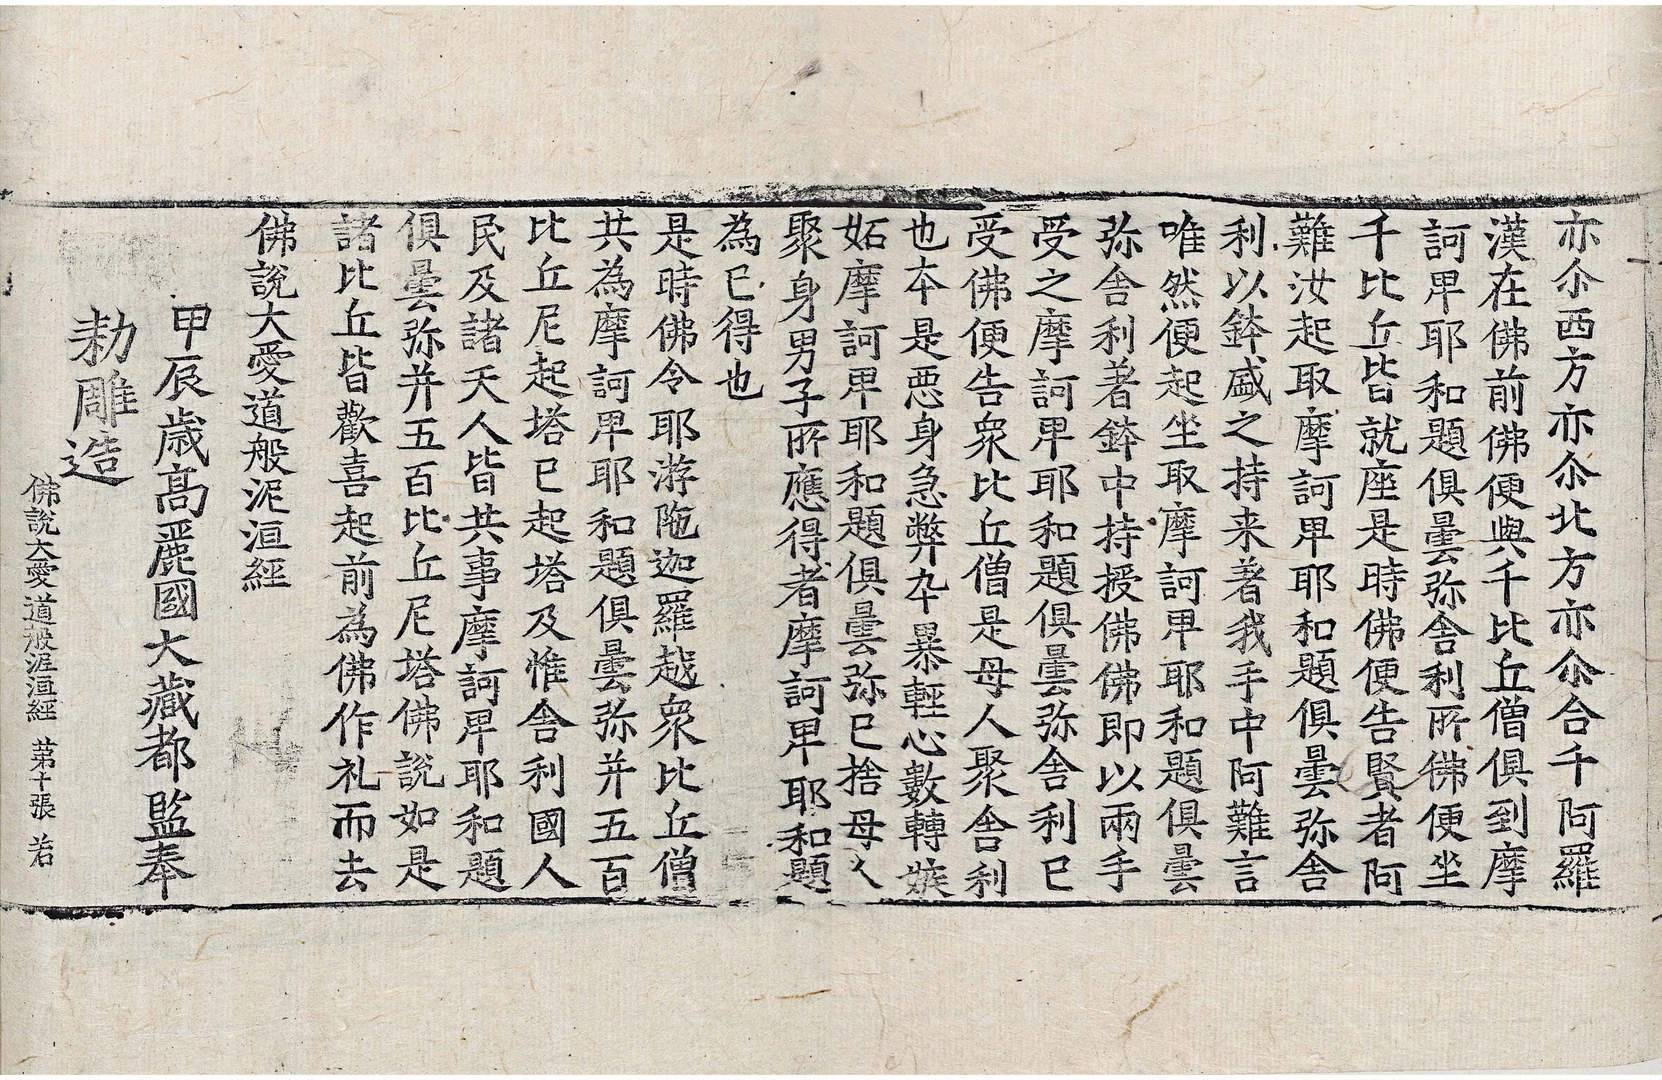 亦尒西方亦尒北方亦尒合千阿羅
漢在佛前佛便與千比丘僧俱到摩
訶卑耶和題俱曇弥舍利所佛便坐
千比丘皆就座是時佛便告賢者阿
難汝起取摩訶卑耶和題俱曇弥舍
利以鉢盛之持来著我手中阿難言
唯然便起坐取摩訶卑耶和題俱曇
弥舍利著鉢中持授佛佛即以兩手
受之摩訶卑耶和題俱曇弥舍利已
受佛便告衆比丘僧是母人聚舍利
也夲是惡身急弊卒暴輕心數轉嫉
妬摩訶卑耶和題俱曇弥已捨母人
聚身男子所應得者摩訶卑耶和題
為已得也
是時佛令耶游陁迦羅越衆比丘僧
共為摩訶卑耶和題俱曇弥并五百
比丘尼起塔已起塔及惟舍利國人
民及諸天人皆共事摩訶卑耶和題
俱曇弥并五百比丘尼塔佛說如是
諸比丘皆歡喜起前為佛作礼而去
佛說大愛道般泥洹經
甲辰歳高麗國大藏都監奉
勑雕造
佛說大愛道般涅洹經 第十張 若